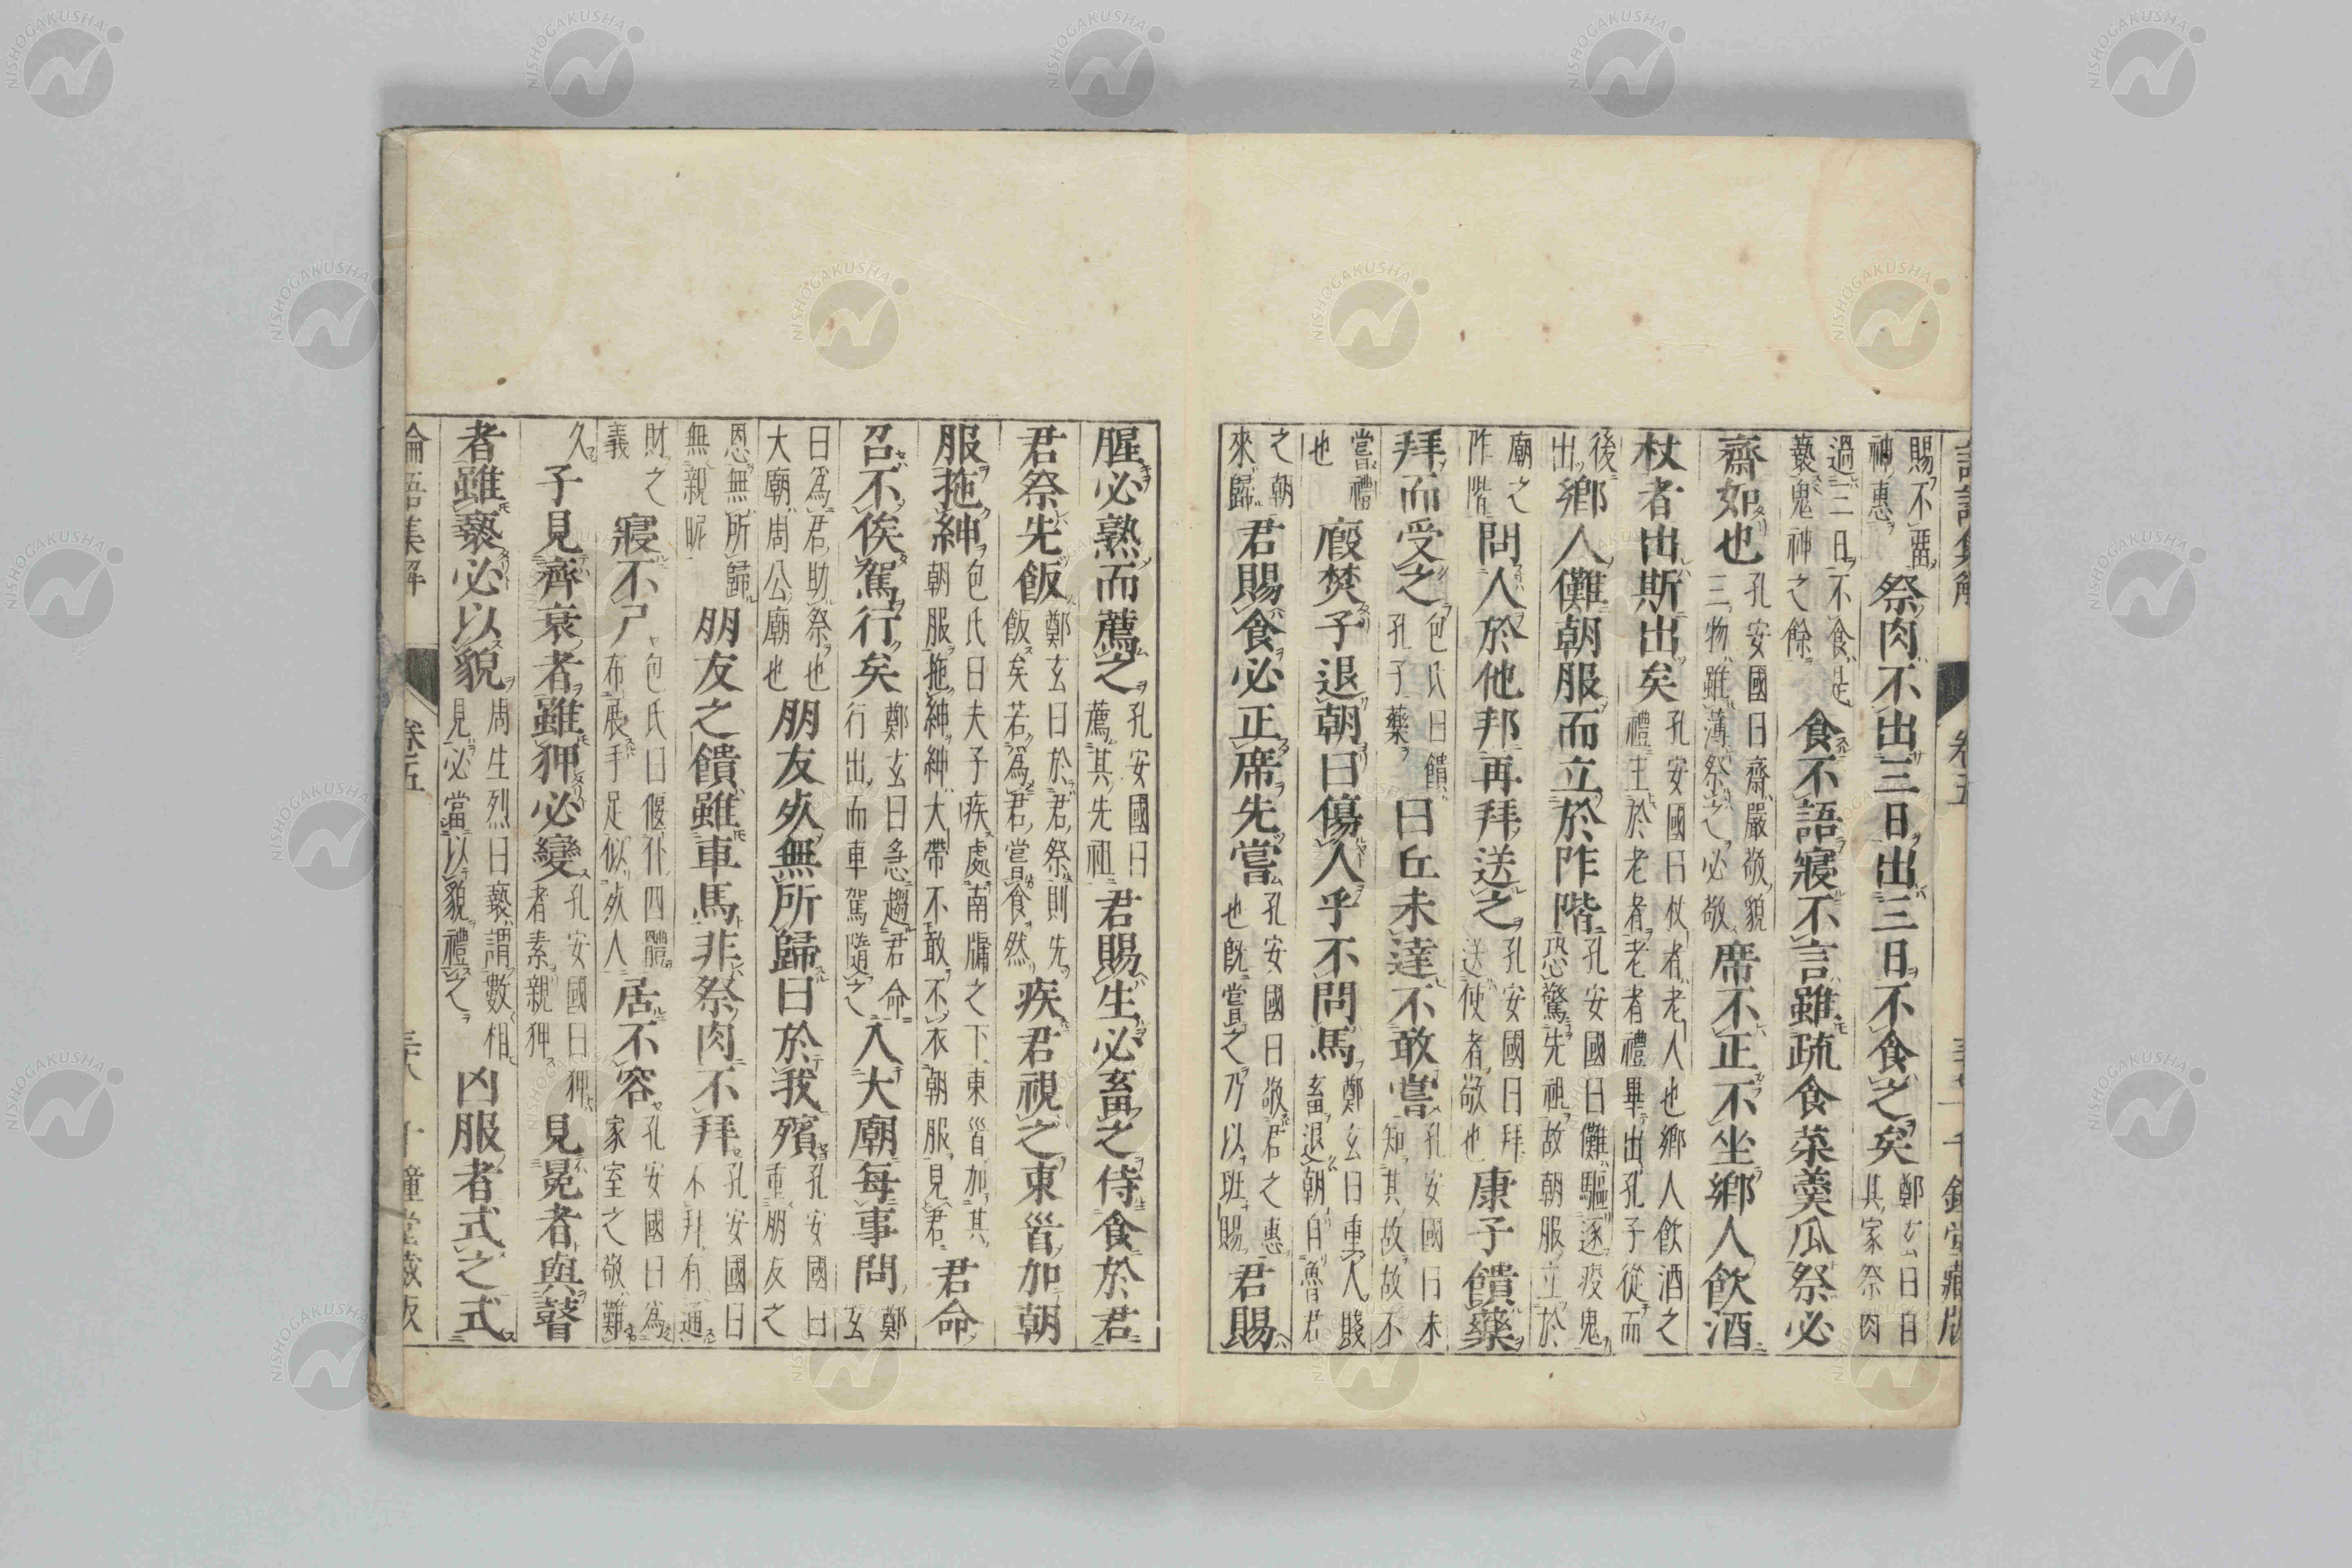 賜不畱神惠祭肉不出三日出三日不食之矣鄭玄曰自其家祭肉
過三日不食是褻鬼神之餘食不語寢不言雖疏食菜羹瓜祭必
齋如也孔安國曰齋嚴敬貌三物雖薄祭之必敬席不正不坐鄉人飲酒
杖者出斯出矣孔安國曰杖者老人也鄉人飲酒之禮主於老者老者禮畢出孔子從而
後出鄉人儺朝服而立於阼階孔安國曰儺驅逐疫鬼恐驚先祖故朝服立於
廟之阼階問人於他邦再拜送之孔安國曰拜送使者敬也康子饋藥
拜而受之包氏曰饋孔子藥曰丘未達不敢嘗孔安國曰未知其故故不
嘗禮也廄焚子退朝曰傷人乎不問馬鄭玄曰重人賤畜退朝自魯君
之朝來歸君賜食必正席先嘗孔安國曰敬君之惠也既嘗之乃以班賜君賜
腥必熟而薦之孔安國曰薦其先祖君賜生必畜之侍食於君
君祭先飯鄭玄曰於君祭則先飯矣若爲君嘗食然疾君視之東首加朝
服拖紳包氏曰夫子疾處南牖之下東首加其朝服拖紳紳大帶不敢不衣朝服見君君命
召不俟駕行矣鄭玄曰急趨君命行出而車駕隨之入大廟每事問鄭玄
曰爲君助祭也大廟周公廟也朋友死無所歸曰於我殯孔安國曰重朋友之
恩無所歸無親昵朋友之饋雖車馬非祭肉不拜孔安國曰不拜有通
財之義寢不尸包氏曰偃仆四體布展手足似死人居不容孔安國曰爲家室之敬難
久子見齊衰者雖狎必變孔安國曰狎者素親狎見冕者與瞽
者雖褻必以貌周生烈曰褻謂數相見必當以貌禮之凶服者式之式
論語集解 卷五
NISHOGAKUSHA